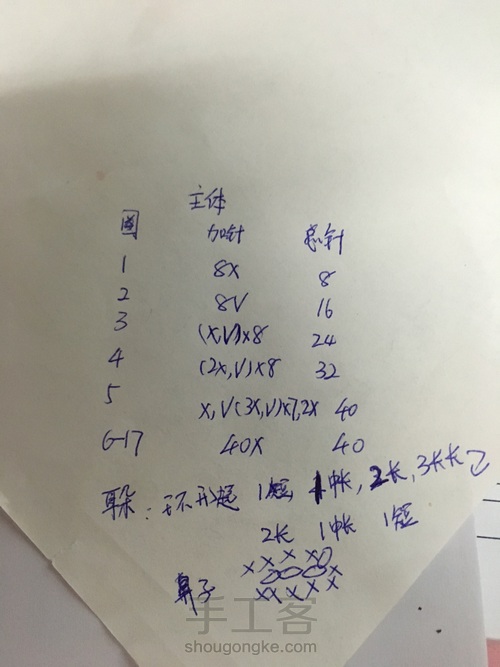 主体
圈 加针 总针
1 8X 8
2 8V 16
3 (X,V)×8 24
4 (2X,V)×8 32
5 X,V(3X,V)×7,2X 40
6-17 40X 40
耳朵:环形起 1短 1中长,2长,3长长
2长 1中长 1短
XXXX
鼻子 XXXXX
手工客
shougongke.com